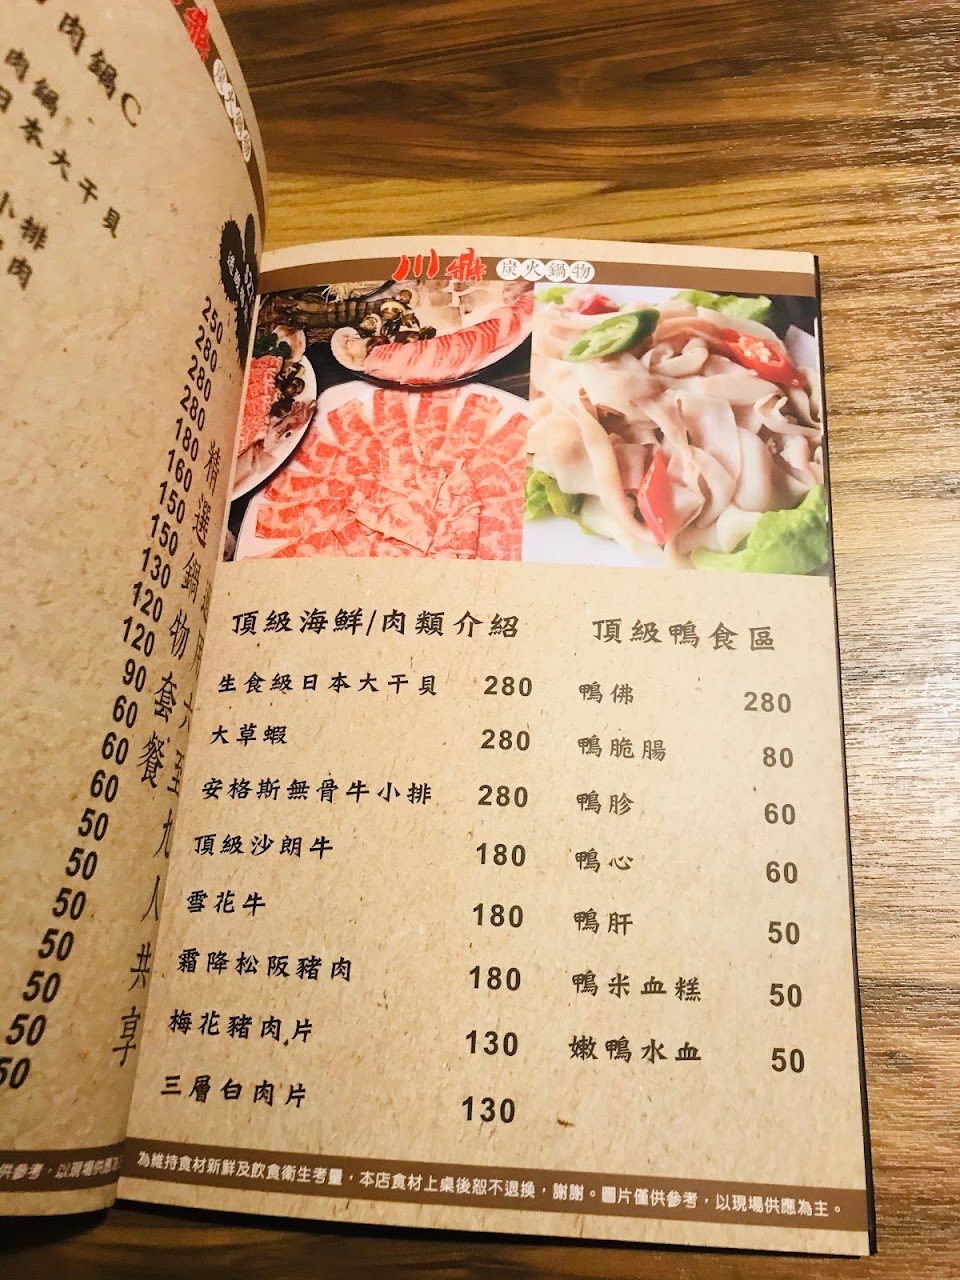 肉鍋C
肉鍋
日本大干貝
小排
肉
250
280
280
280
180
160
150
150
130
120
120
90
60
60
60
50
50
50
50
50
50
50
精選鍋物套餐
六至九人共享
供參考，以現場供應為
川鼎 炭火鍋物
頂級海鮮/肉類介紹
生食級日本大干貝 280
大草蝦 280
安格斯無骨牛小排 280
頂級沙朗牛 180
雪花牛 180
霜降松阪豬肉 180
梅花豬肉片 130
三層白肉片 130
頂級鴨食區
鴨佛 280
鴨脆腸 80
鴨胗 60
鴨心 60
鴨肝 50
鴨米血糕 50
嫩鴨水血 50
為維持食材新鮮及飲食衛生考量，本店食材上桌後恕不退換，謝謝。圖片僅供參考，以現場供應為主。